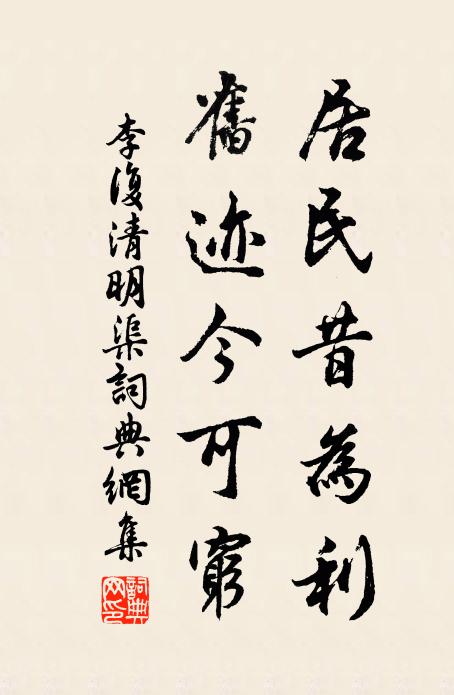 居民昔為利
舊迹今可窮
李復清明渠詞典網集
詞典网印